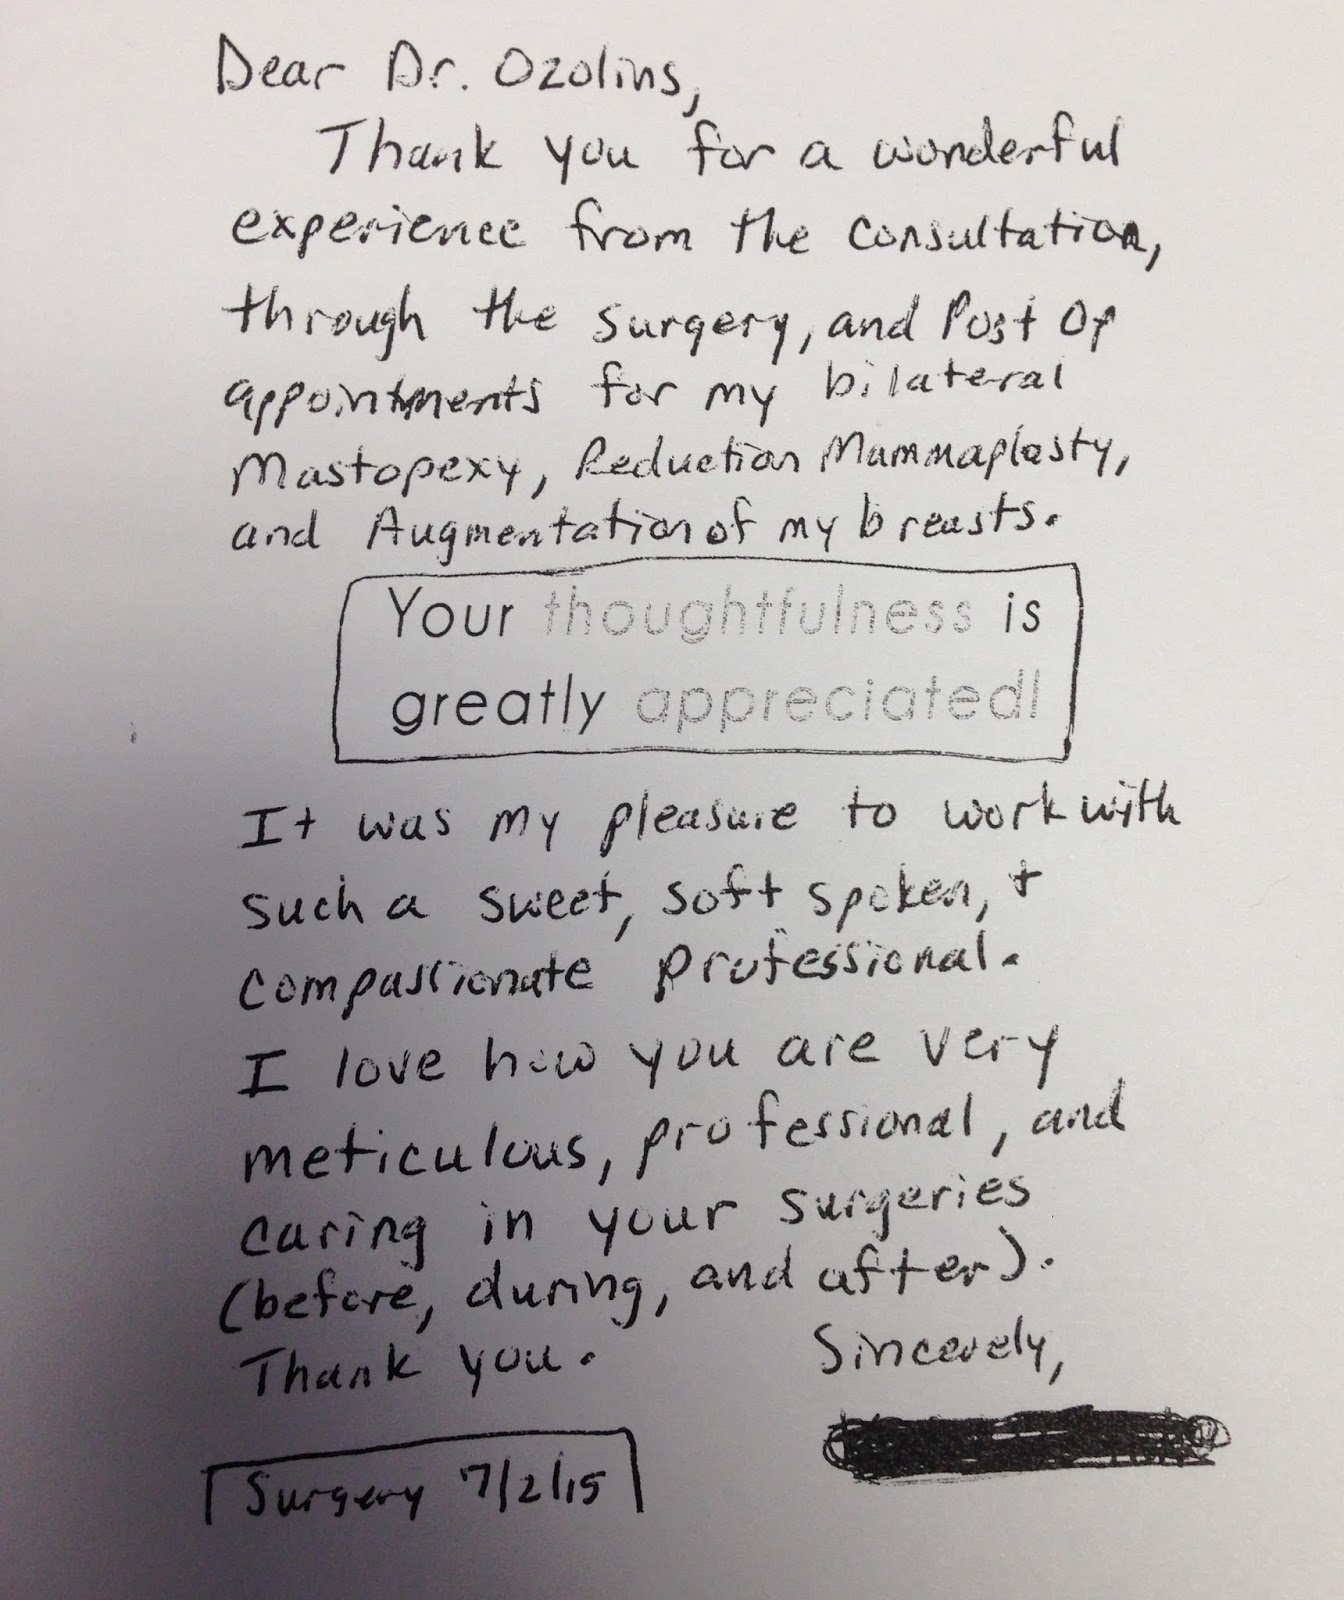 Dear Dr. Ozolins,
Thank you for a wonderful
experience from the consultation,
through the surgery, and Post Op
appointments for my bilateral
Mastopexy, Reduction Mammaplasty,
and Augmentation of my breasts.
Your thoughtfulness is
greatly appreciated!
It was my pleasure to work with
such a sweet, soft spoken, +
compassionate professional.
I love how you are very
meticulous, professional, and
caring in your surgeries
(before, during, and after).
Thank you. Sincerely,
Surgery 7/2/15